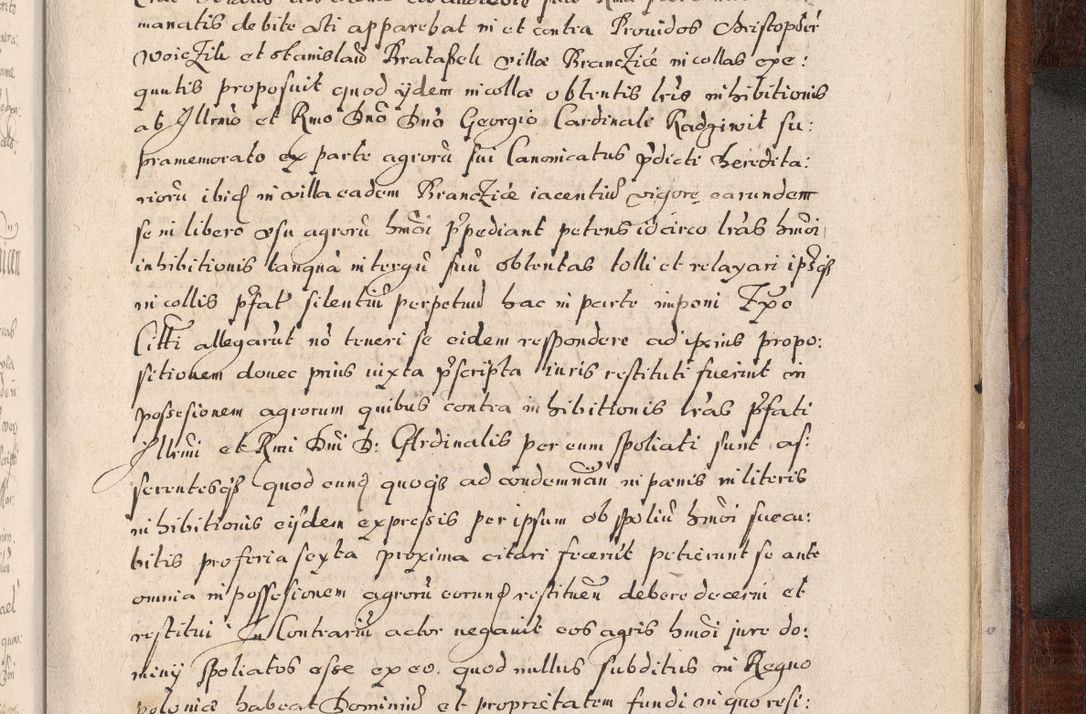 manatis debite ati apparebat in et contra Prouidos Christopher
Woiczik et Stanislaū Brataßek villæ Branczicé incollas exe:
quutis proposuit quod ÿdem incollæ obtentis lrīs inhibitionis
ab Illrmo et Rmo Dno Dno Georgio Cardinali Radziwit su:
pramemorato ex parte agrorū sui Canonicatus p̄dicti heredita:
riorū ibid in villa eadem Branczicé iacentiū vigore earundem
se in libero vsu agrorū hmōi p̄pediant petens idcirco lrās hmōi
inhibitionis tanquā in tergū suū obtentas tolli et relaxari ipsisq
incollis p̄fat silentiū perpetuū hac in parte imponi Ex eo
Citti allegarūt nō teneri se eidem respondere ad ipsius propo:
sitionem donec prius iuxta p̄scripta iuris restituti fuerint in
possesionem agrorum quibus contra inhibitionis lrās p̄fati
Illrmi et Rmi Dni D: Cardinalis per eum spoliati sunt as:
serentesq quod eund quoq ad condemnān in pænis in literis
inhibitionis eisdem expressis per ipsum ob spoliū hmōi succu:
bitis pro feria sexta proxima citari fecerūt petierunt se ante
omnia in possessionem agrorū eorund restituēn debere decerni et
restitui In Contrariū actor negauit eos agris hmōi jure do:
minij spoliatos esse ex eo quod nullus subditus in Regno
poloniæ habeat Dominiū et proprietatem fundi in quo resi: